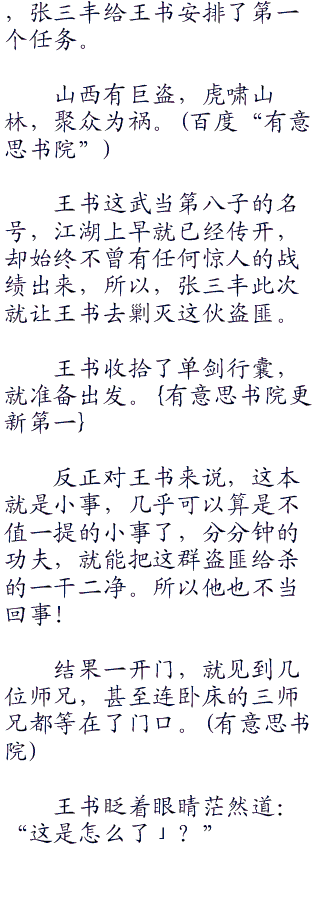 ，张三丰给王书安排了第一
个任务。
山西有巨盗，虎啸山
林，聚众为祸。(百度“有意
思书院”)
王书这武当第八子的名
号，江湖上早就已经传开，
却始终不曾有任何惊人的战
绩出来，所以，张三丰此次
就让王书去剿灭这伙盗匪。
王书收拾了单剑行囊，
就准备出发。{有意思书院更
新第一}
反正对王书来说，这本
就是小事，几乎可以算是不
值一提的小事了，分分钟的
功夫，就能把这群盗匪给杀
的一干二净。所以他也不当
回事！
结果一开门，就见到几
位师兄，甚至连卧床的三师
兄都等在了门口。(有意思书
院)
王书眨着眼睛茫然道：
“这是怎么了」？”